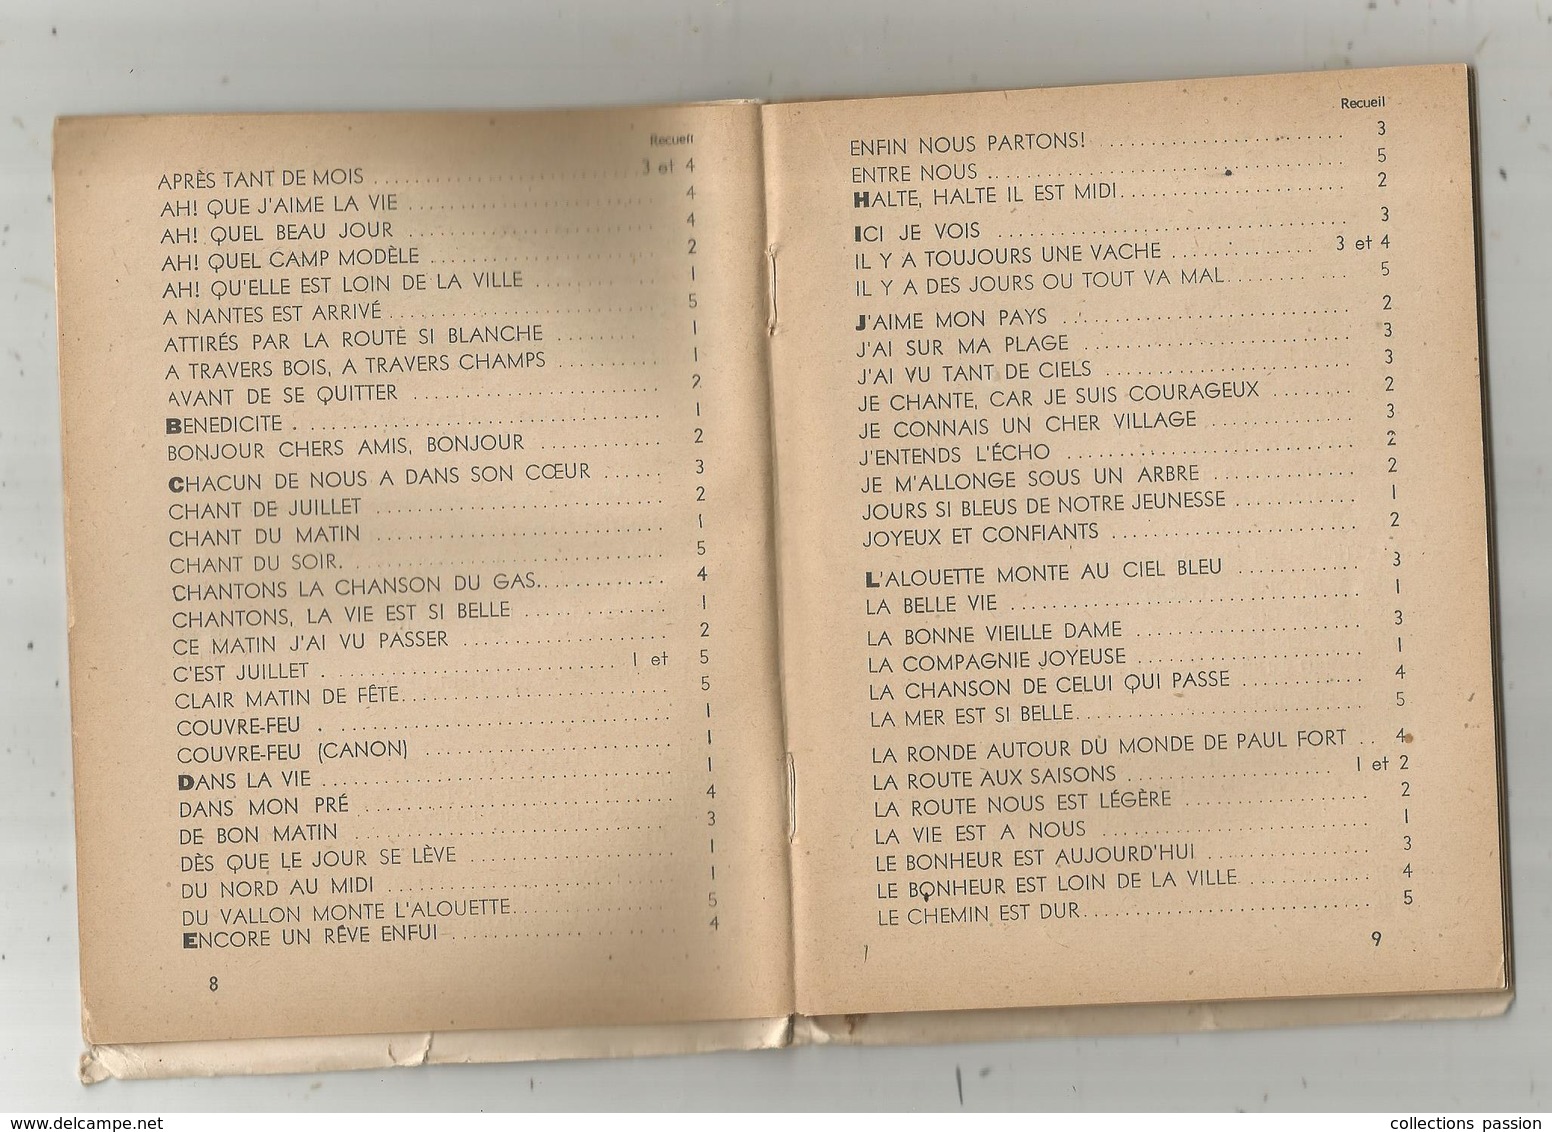 Recueil
APRÈS TANT DE MOIS ........ 3 et 4
AH! QUE J'AIME LA VIE ........ 4
AH! QUEL BEAU JOUR ........ 4
AH! QUEL CAMP MODÈLE ........ 2
AH! QU'ELLE EST LOIN DE LA VILLE ........ 1
A NANTES EST ARRIVÉ ........ 5
ATTIRÉS PAR LA ROUTE SI BLANCHE ........ 1
A TRAVERS BOIS, A TRAVERS CHAMPS ........ 1
AVANT DE SE QUITTER ........ 2
BENEDICITE ........ 1
BONJOUR CHERS AMIS, BONJOUR ........ 2
CHACUN DE NOUS A DANS SON CŒUR ...... 3
CHANT DE JUILLET ........ 2
CHANT DU MATIN ........ 1
CHANT DU SOIR ........ 5
CHANTONS LA CHANSON DU GAS ........ 4
CHANTONS, LA VIE EST SI BELLE ........ 1
CE MATIN J'AI VU PASSER ........ 2
C'EST JUILLET ........ 1 et 5
CLAIR MATIN DE FÊTE ........ 5
COUVRE-FEU ........ 1
COUVRE-FEU (CANON) ........ 1
DANS LA VIE ........ 1
DANS MON PRÉ ........ 4
DE BON MATIN ........ 3
DÈS QUE LE JOUR SE LÈVE ........ 1
DU NORD AU MIDI ........ 1
DU VALLON MONTE L'ALOUETTE ........ 5
ENCORE UN RÊVE ENFUI ........ 4
8
Recueil
ENFIN NOUS PARTONS! ........ 3
ENTRE NOUS ........ 5
HALTE, HALTE IL EST MIDI ........ 2
ICI JE VOIS ........ 3
IL Y A TOUJOURS UNE VACHE ........ 3 et 4
IL Y A DES JOURS OU TOUT VA MAL ........ 5
J'AIME MON PAYS ........ 2
J'AI SUR MA PLAGE ........ 3
J'AI VU TANT DE CIELS ........ 3
JE CHANTE, CAR JE SUIS COURAGEUX ....... 2
JE CONNAIS UN CHER VILLAGE ........ 3
J'ENTENDS L'ÉCHO ........ 2
JE M'ALLONGE SOUS UN ARBRE ........ 2
JOURS SI BLEUS DE NOTRE JEUNESSE ........ 1
JOYEUX ET CONFIANTS ........ 2
L'ALOUETTE MONTE AU CIEL BLEU ........ 3
LA BELLE VIE ........ 1
LA BONNE VIEILLE DAME ........ 3
LA COMPAGNIE JOYEUSE ........ 1
LA CHANSON DE CELUI QUI PASSE ........ 4
LA MER EST SI BELLE ........ 5
LA RONDE AUTOUR DU MONDE DE PAUL FORT .. 4
LA ROUTE AUX SAISONS ........ 1 et 2
LA ROUTE NOUS EST LÉGÈRE ........ 2
LA VIE EST A NOUS ........ 1
LE BONHEUR EST AUJOURD'HUI ........ 3
LE BONHEUR EST LOIN DE LA VILLE ........ 4
LE CHEMIN EST DUR ........ 5
9
www.delcampe.net
collections passion